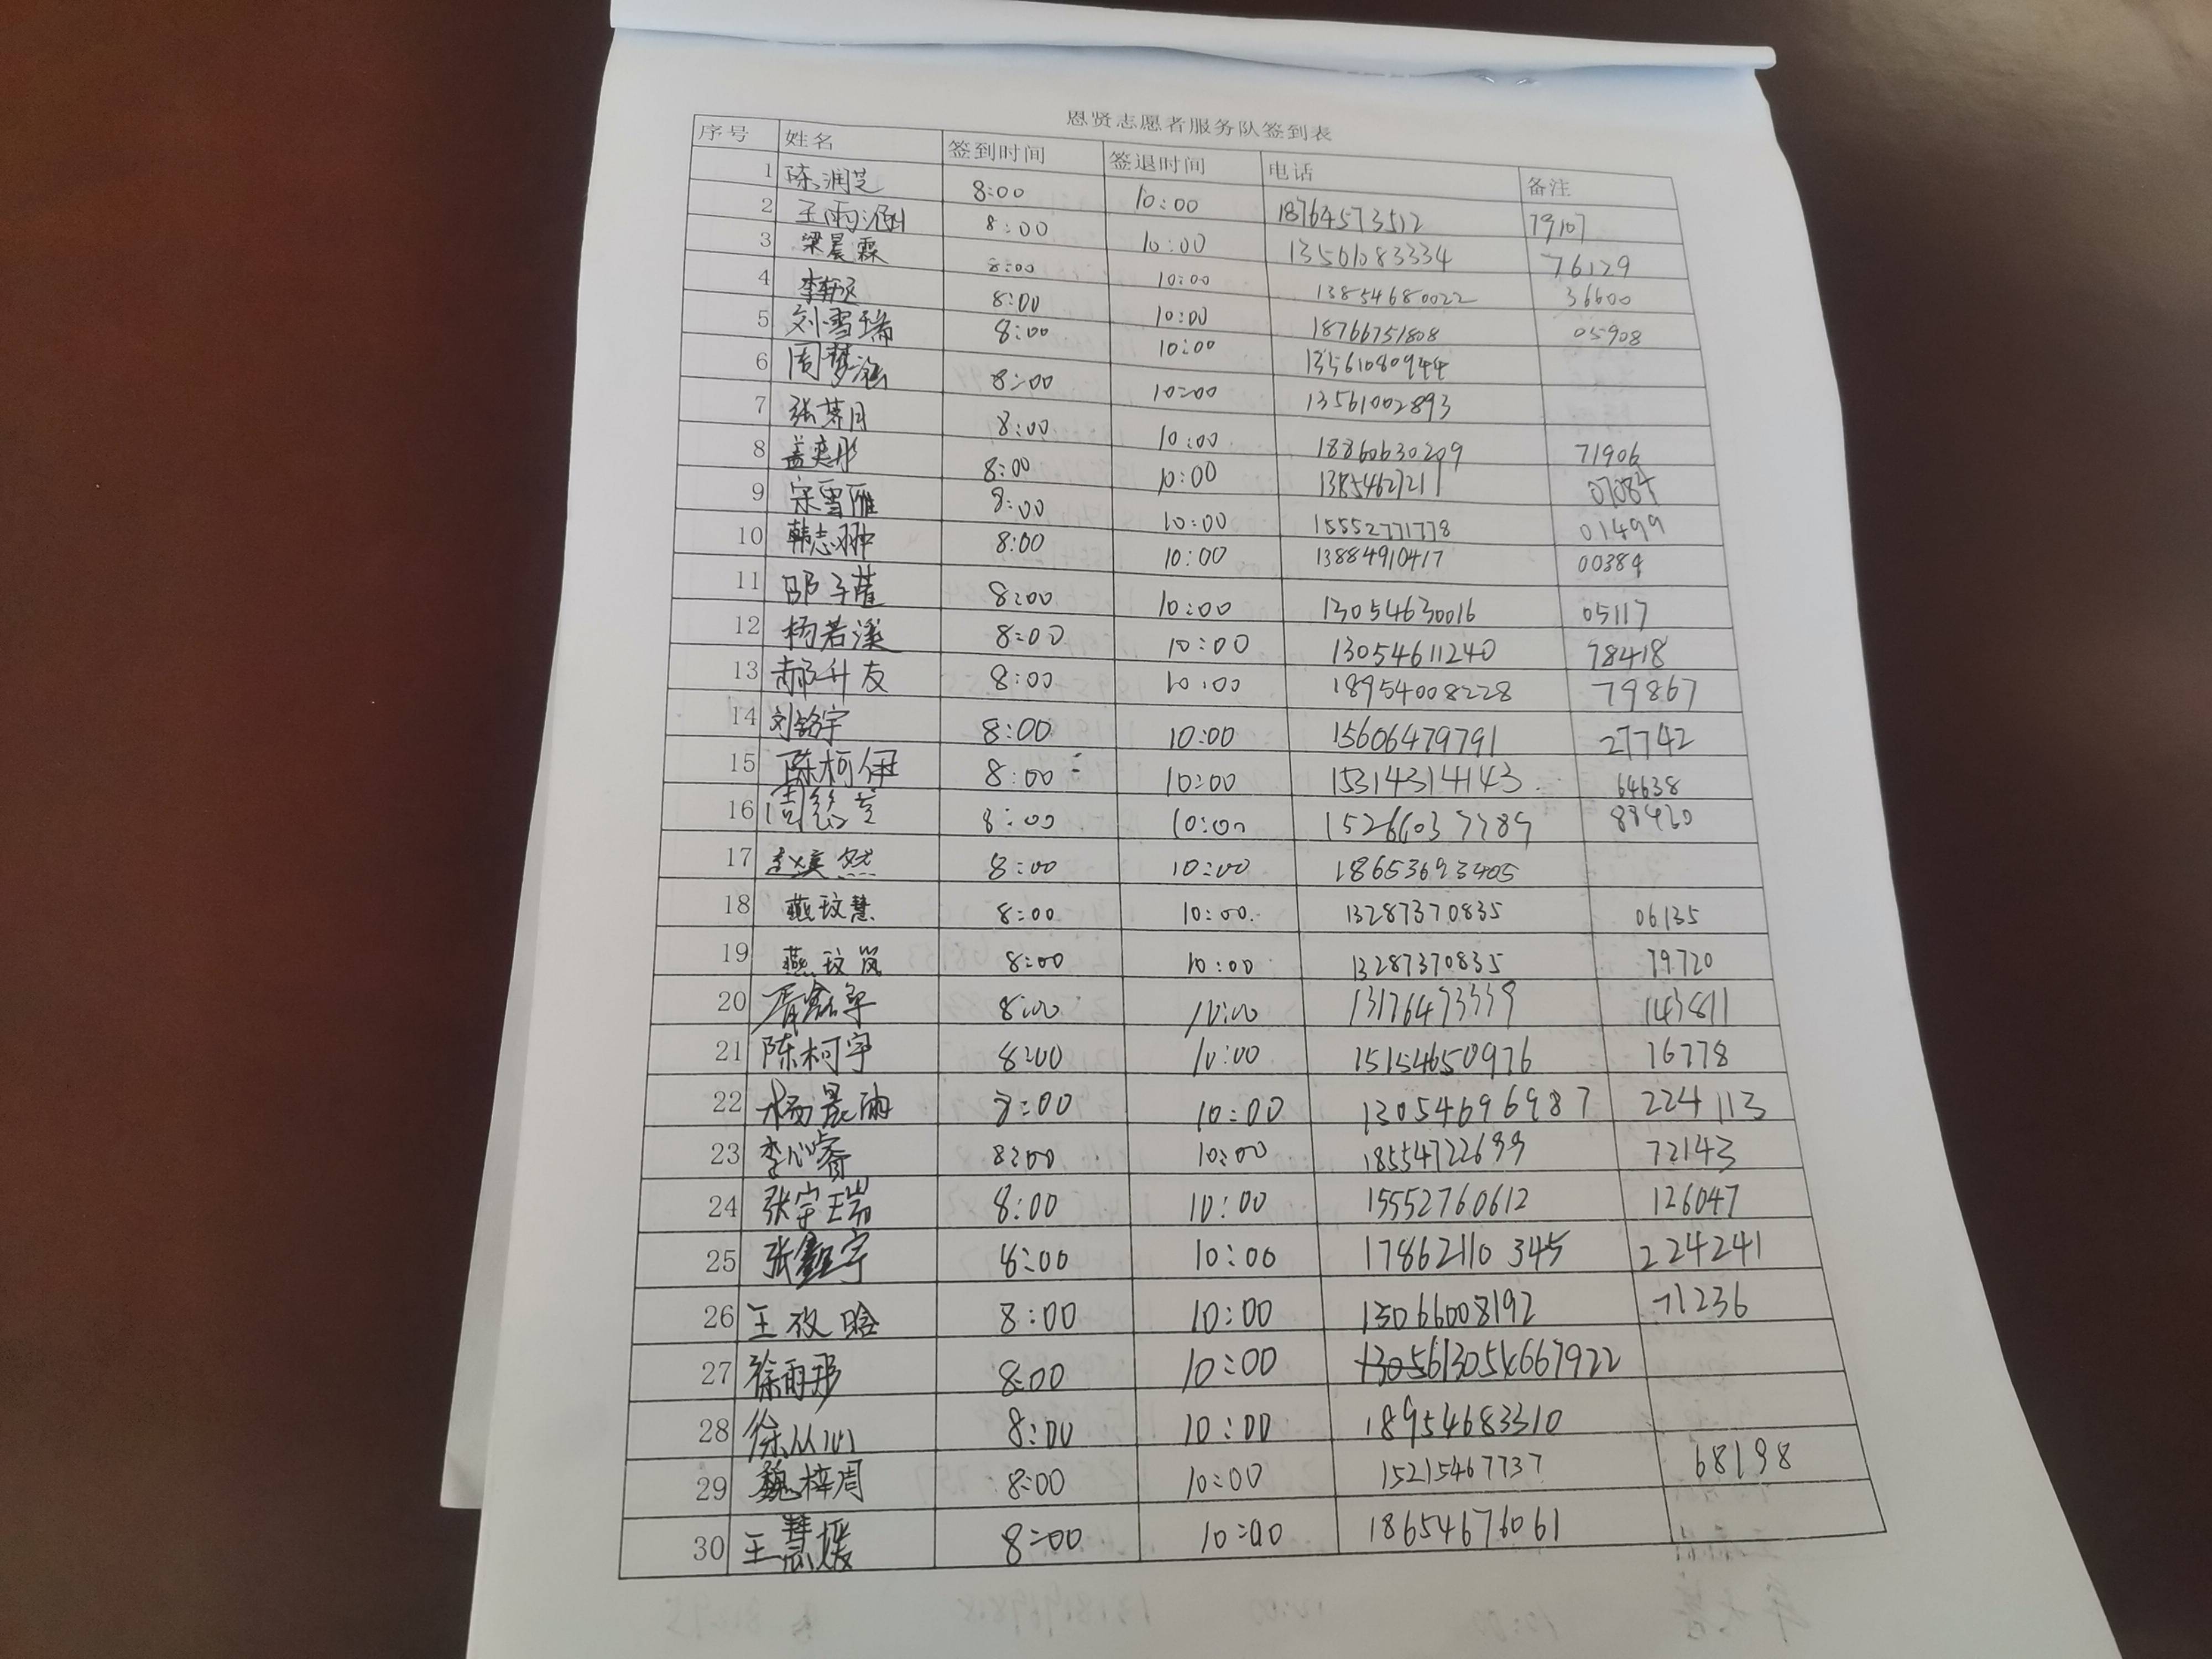 恩贤志愿者服务队签到表
序号 姓名 签到时间 签退时间 电话 备注
1 陈润芝 8:00 10:00 18764573512 79107
2 王雨涵 8:00 10:00 13561083334 76129
3 梁晨霖 8:00 10:00 13854680022 36600
4 8:00 10:00 18766751808 05908
5 刘雪瑞 8:00 10:00 13561080944
6 周梦涵 8:00 10:00 13561002893
7 张 月 8:00 10:00 18860630209 71906
8 盖奕彤 8:00 10:00 1385462721
9 宋雪雁 8:00 10:00 15552771778 01499
10 韩志翀 8:00 10:00 13884910417 00384
11 邵子萱 8:00 10:00 13054630016 05117
12 杨若溪 8:00 10:00 13054611240 78418
13 郝升友 8:00 10:00 18954008228 79867
14 刘铭宇 8:00 10:00 15606479791 27742
15 陈柯伊 8:00 10:00 15314314143 64638
16 周 8:00 10:00
17 赵奕然 8:00 10:00 18653693405
18 燕玟慧 8:00 10:00 13287370835 06135
19 燕玟岚 8:00 10:00 13287370835 79720
20 胥鑫宇 8:00 10:00 13176473339 143811
21 陈柯宇 8:00 10:00 15154650976 16778
22 杨晨雨 8:00 10:00 13054696987 224113
23 李心睿 8:00 10:00 18554722699 72143
24 张宇瑞 8:00 10:00 15552760612 126047
25 张鑫宇 8:00 10:00 17862110345 224241
26 王 晗 8:00 10:00 13066008192 71236
27 徐雨彤 8:00 10:00
28 徐从心 8:00 10:00 18954683310
29 魏梓周 8:00 10:00 15215467737 68198
30 王慧媛 8:00 10:00 18654676061